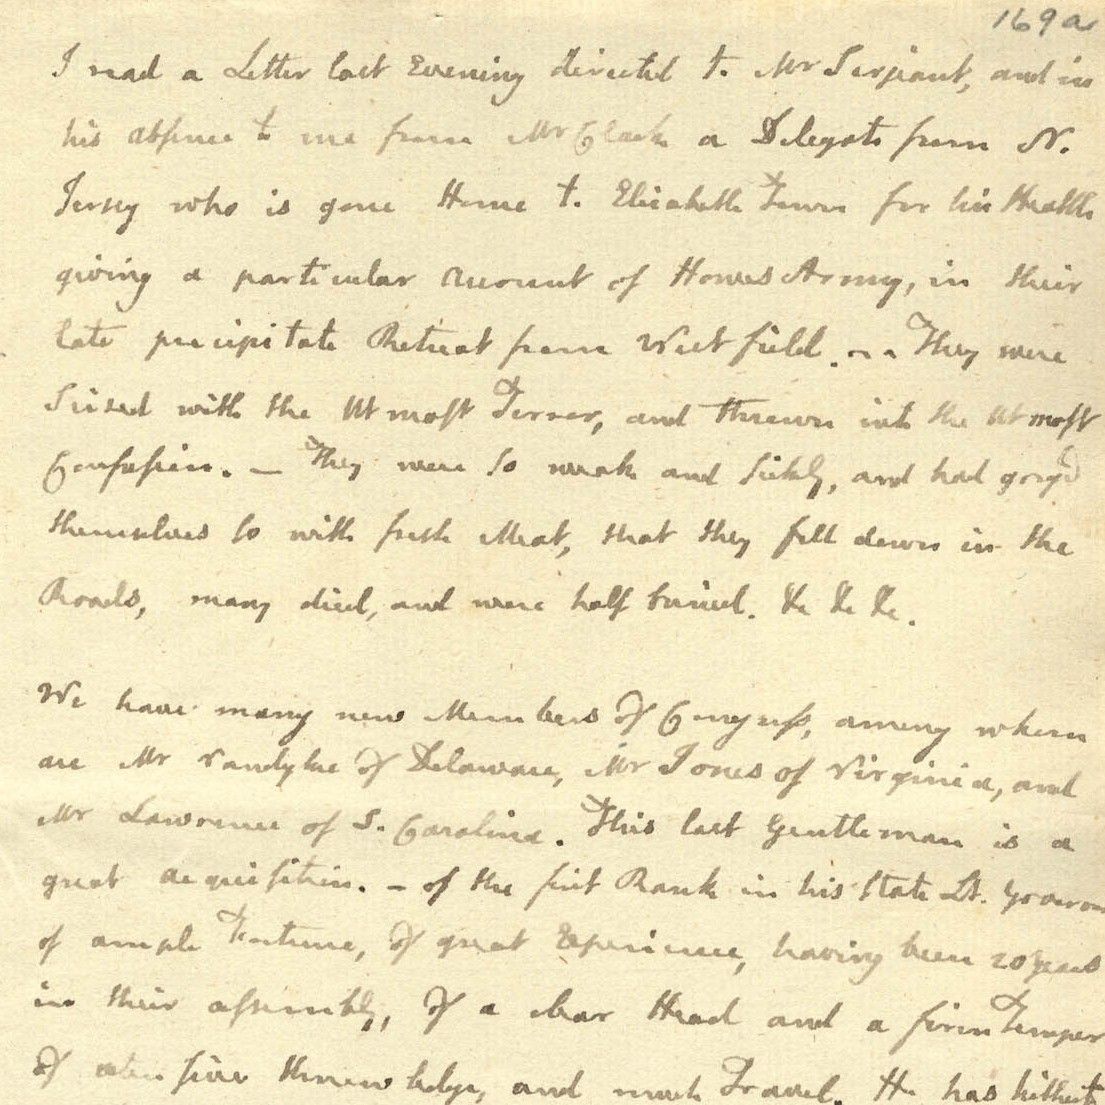 169a
I read a Letter last Evening directed to Mr Serjeant, and in
his absence to me from Mr Clark a Delegate from N.
Jersey who is gone Home to Elizabeth Town for his Health
giving a particular Account of Howes Army, in their
late precipitate Retreat from Westfield. — They were
Seized with the Utmost Terror, and thrown into the Utmost
Confusion. — They were so weak and sickly, and had gorg'd
themselves so with fresh Meat, that they fell down in the
Roads, many died, and were half buried. &c &c &c.
We have many new Members of Congress, among whom
are Mr Vandyke of Delaware, Mr Jones of Virginia, and
Mr Lawrence of S. Carolina. This last Gentleman is a
great acquisition. — of the first Rank in his State Lt. Governor
of ample Fortune, of great Experience, having been 20 Years
in their assembly, of a clear Head and a firm Temper
of extensive Knowledge, and much Travel. He has hitherto